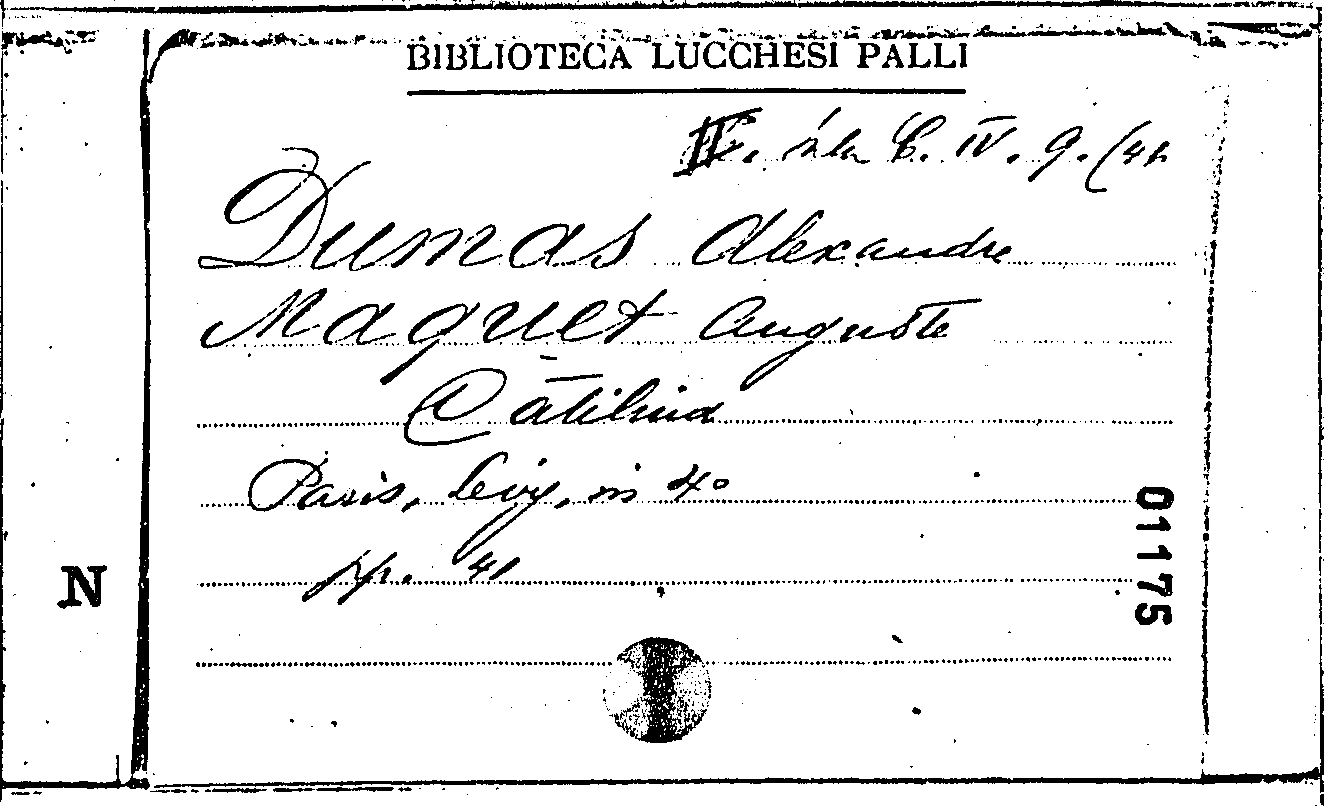 BIBLIOTECA LUCCHESI PALLI
C. IV. 9. (41
Dumas Alexandre
Maquet Auguste
Catilina
Paris, Levy, in 4°
pp. 41
01175
N